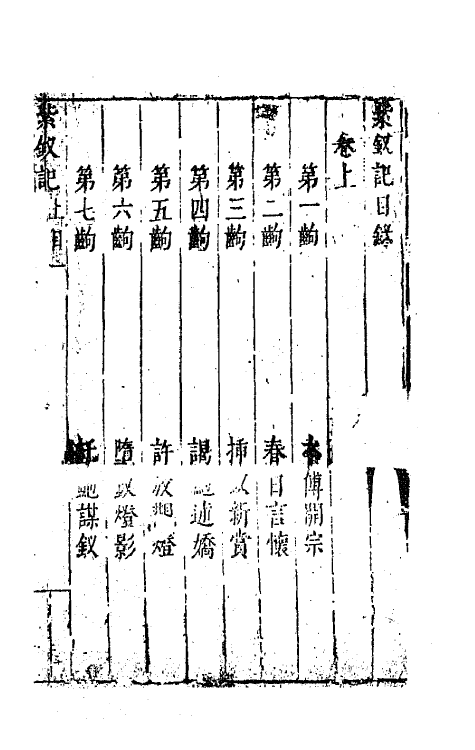 紫釵記目錄
卷上
第一齣 本傳開宗
第二齣 春日言懷
第三齣 插釵新賞
第四齣 謁鮑述嬌
第五齣 許放觀燈
第六齣 墮釵燈影
第七齣 託鮑謀釵
紫釵記 上目 一